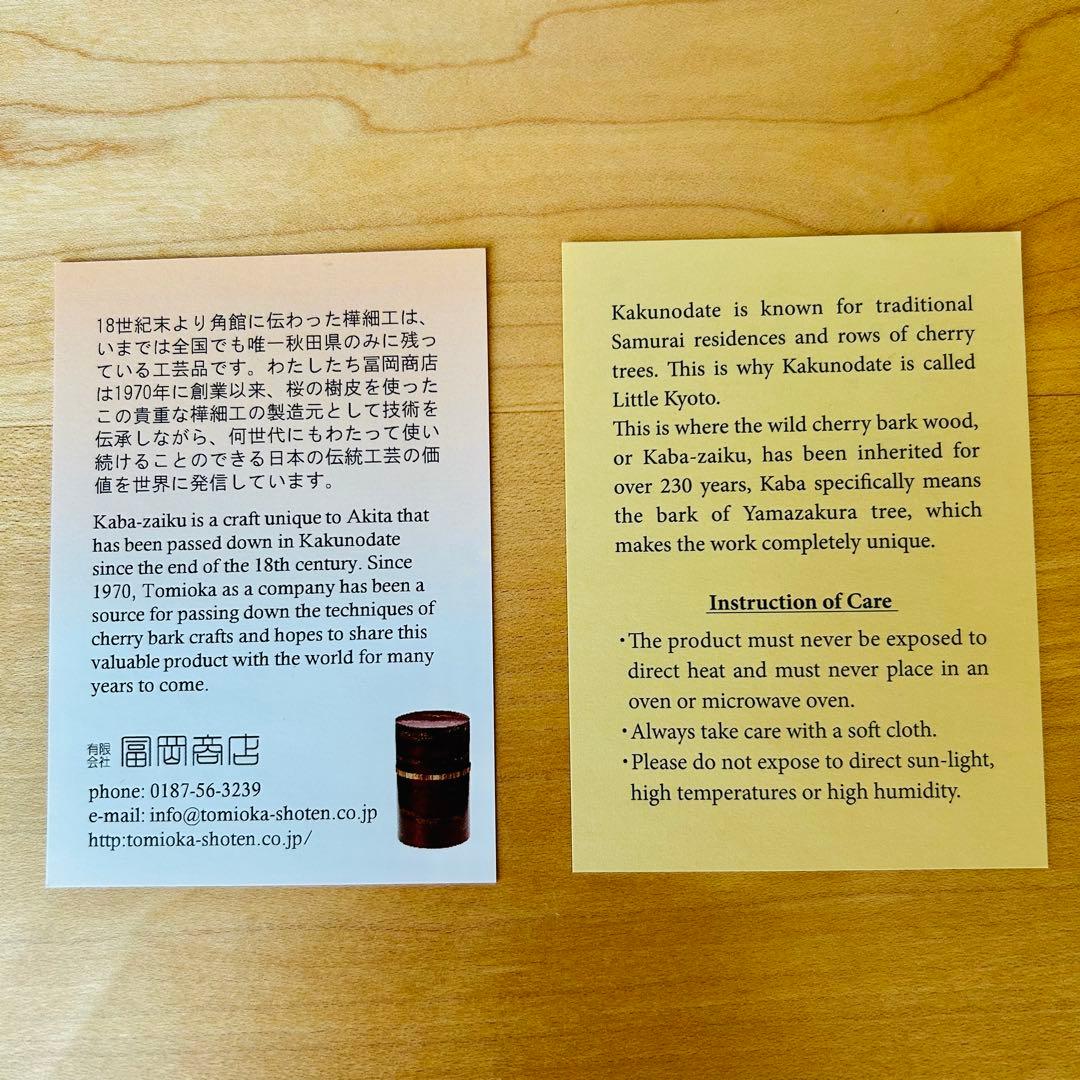 18世紀末より角館に伝わった樺細工は、
いまでは全国でも唯一秋田県のみに残っ
ている工芸品です。わたしたち冨岡商店
は1970年に創業以来、桜の樹皮を使った
この貴重な樺細工の製造元として技術を
伝承しながら、何世代にもわたって使い
続けることのできる日本の伝統工芸の価
値を世界に発信しています。
Kaba-zaiku is a craft unique to Akita that
has been passed down in Kakunodate
since the end of the 18th century. Since
1970, Tomioka as a company has been a
source for passing down the techniques of
cherry bark crafts and hopes to share this
valuable product with the world for many
years to come.
有限会社 冨岡商店
phone: 0187-56-3239
e-mail: info@tomioka-shoten.co.jp
http:tomioka-shoten.co.jp/
Kakunodate is known for traditional
Samurai residences and rows of cherry
trees. This is why Kakunodate is called
Little Kyoto.
This is where the wild cherry bark wood,
or Kaba-zaiku, has been inherited for
over 230 years, Kaba specifically means
the bark of Yamazakura tree, which
makes the work completely unique.
Instruction of Care
・The product must never be exposed to
direct heat and must never place in an
oven or microwave oven.
・Always take care with a soft cloth.
・Please do not expose to direct sun-light,
high temperatures or high humidity.